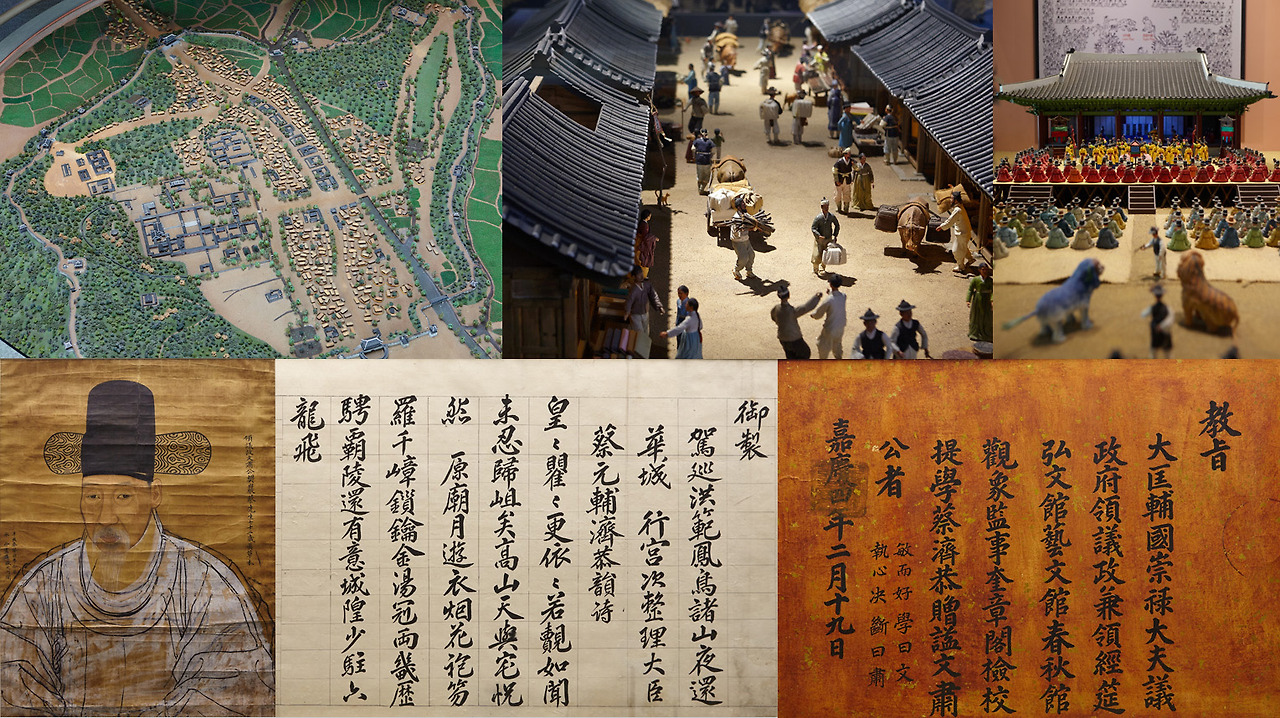 御製
駕巡洪範鳳鳥諸山夜還
華城 行宮次整理大臣
蔡元輔濟恭韻詩
皇〻瞿〻更依〻若覿如聞
未忍歸岵矣高山天與宅怳
然 原廟月遊衣烟花苞笏
羅千嶂鎖鑰金湯冠兩畿歷
騁覇陵還有意城隍少駐六
龍飛
教旨
大匡輔國崇禄大夫議
政府領議政兼領經筵
弘文館藝文館春秋館
觀象監事奎章閣撿校
提學蔡濟恭贈諡文肅
公者
敏而好學曰文
執心决斷曰肅
嘉慶四年二月十九日